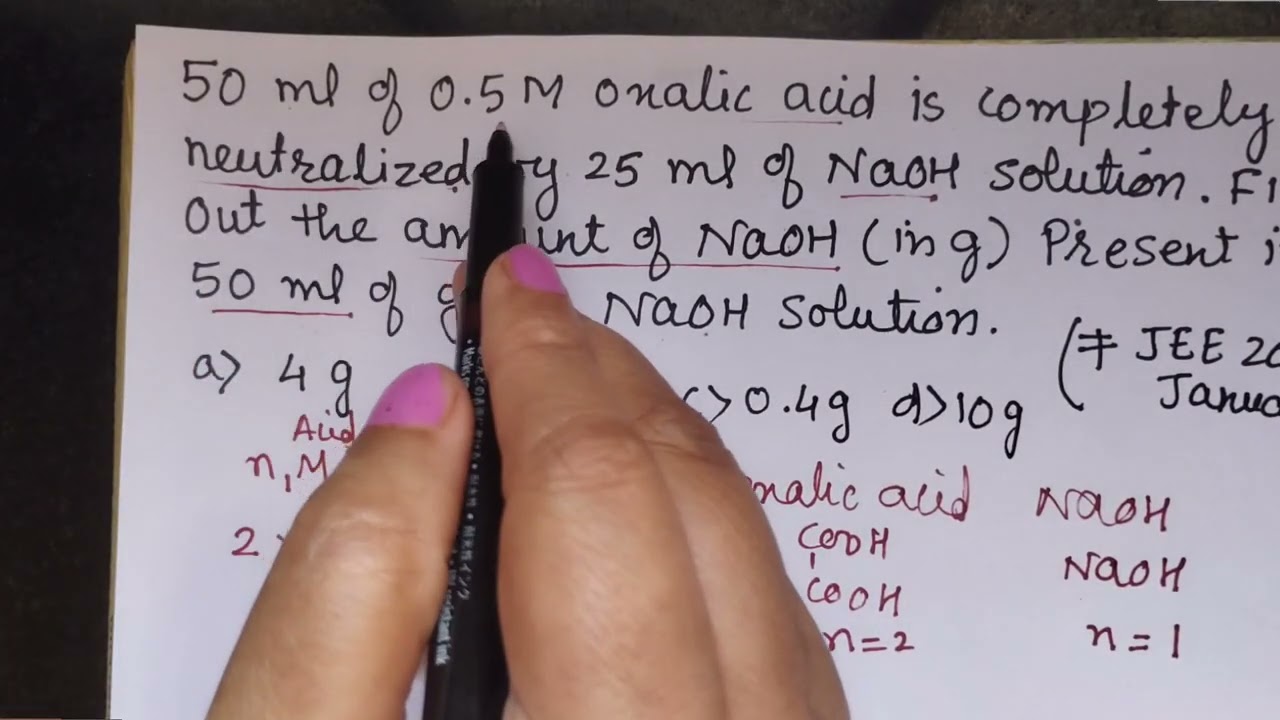 50 ml of 0.5 M oxalic acid is completely
neutralized by 25 ml of NaOH solution.
out the amount of NaOH (in g) Present
50 ml of NaOH solution.
a> 4 g c> 0.4g d> 10g
(# JEE
Acid
n, M
oxalic acid NaOH
2
COOH
NaOH
COOH
n = 2 n = 1